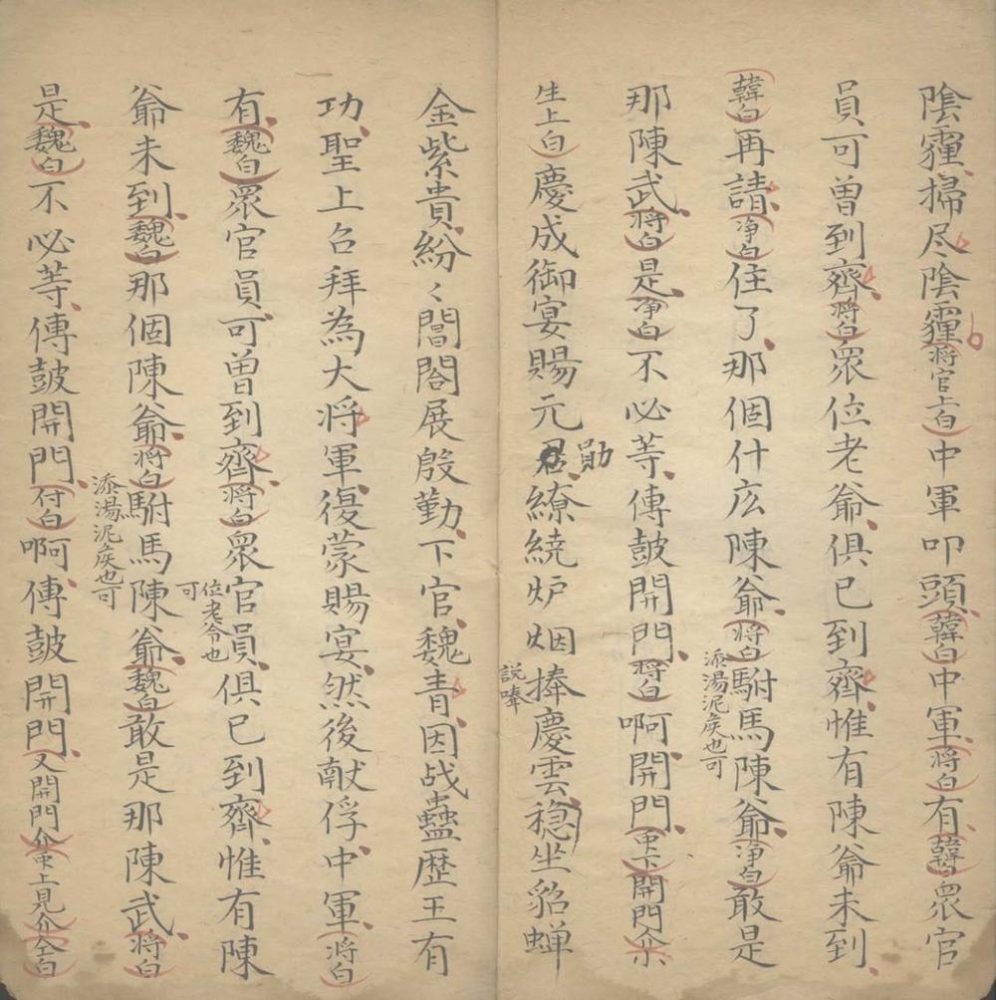 陰霾掃尽陰霾将官上白中軍叩頭韓白中軍将白有韓白衆官
員可曾到齊将白衆位老爺俱已到齊惟有陳爺未到
韓白再請净白住了那個什庅陳爺将白駙馬陳爺净白敢是
添湯泥矦也可
那陳武将白是净白不必等傳皷開門将白啊開門更下開門介
生上白慶成御宴賜元勛繚繞炉烟捧慶雲穏坐貂蝉
説嗱
金紫貴紛〻閶閤展殷勤下官魏青因战蠱歴王有
功聖上召拜為大将軍復蒙賜宴然後献俘中軍将白
有魏白衆官員可曽到齊将白衆官員俱已到齊惟有陳
位老令也可
爺未到魏白那個陳爺将白駙馬陳爺魏白敢是那陳武将白
添湯泥矦也可
是魏白不必等傳皷開門付白啊傳皷開門又開門介更上見介仝白